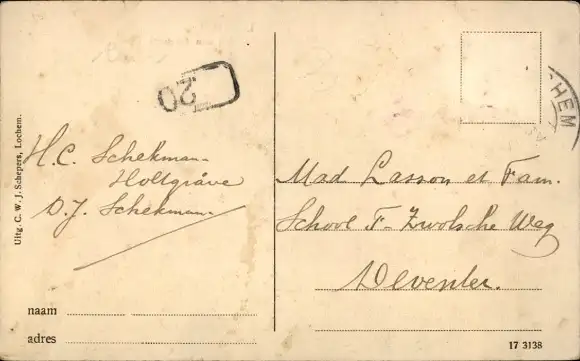 Uitg. C. W. J. Schepers, Lochem.
20
H.C. Schekman-
Holtgräve
D.J. Schekman
naam
adres
CHEM
Mad Lasson et Fam.
School F- Zwolsche Weg
Deventer.
17 3138